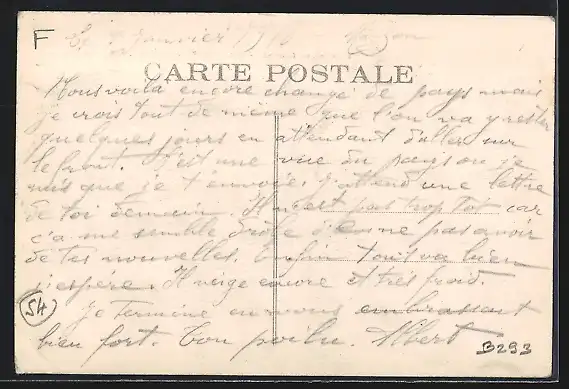 F
Janvier
CARTE POSTALE
Nous voilà encore changé de pays mais
je crois tout de même que l'on va y rester
quelques jours en attendant d'aller sur
le front. C'est une vue du pays où je
suis que je t'envoie. J'attend une lettre
de toi demain. Il n'est pas trop tôt car
ç'a me semble drôle de ne pas avoir
de tes nouvelles. Enfin tout va bien
j'espère. Il neige encore et très froid.
Je termine en vous embrassant
bien fort. Ton poilu. Albert
54
3293